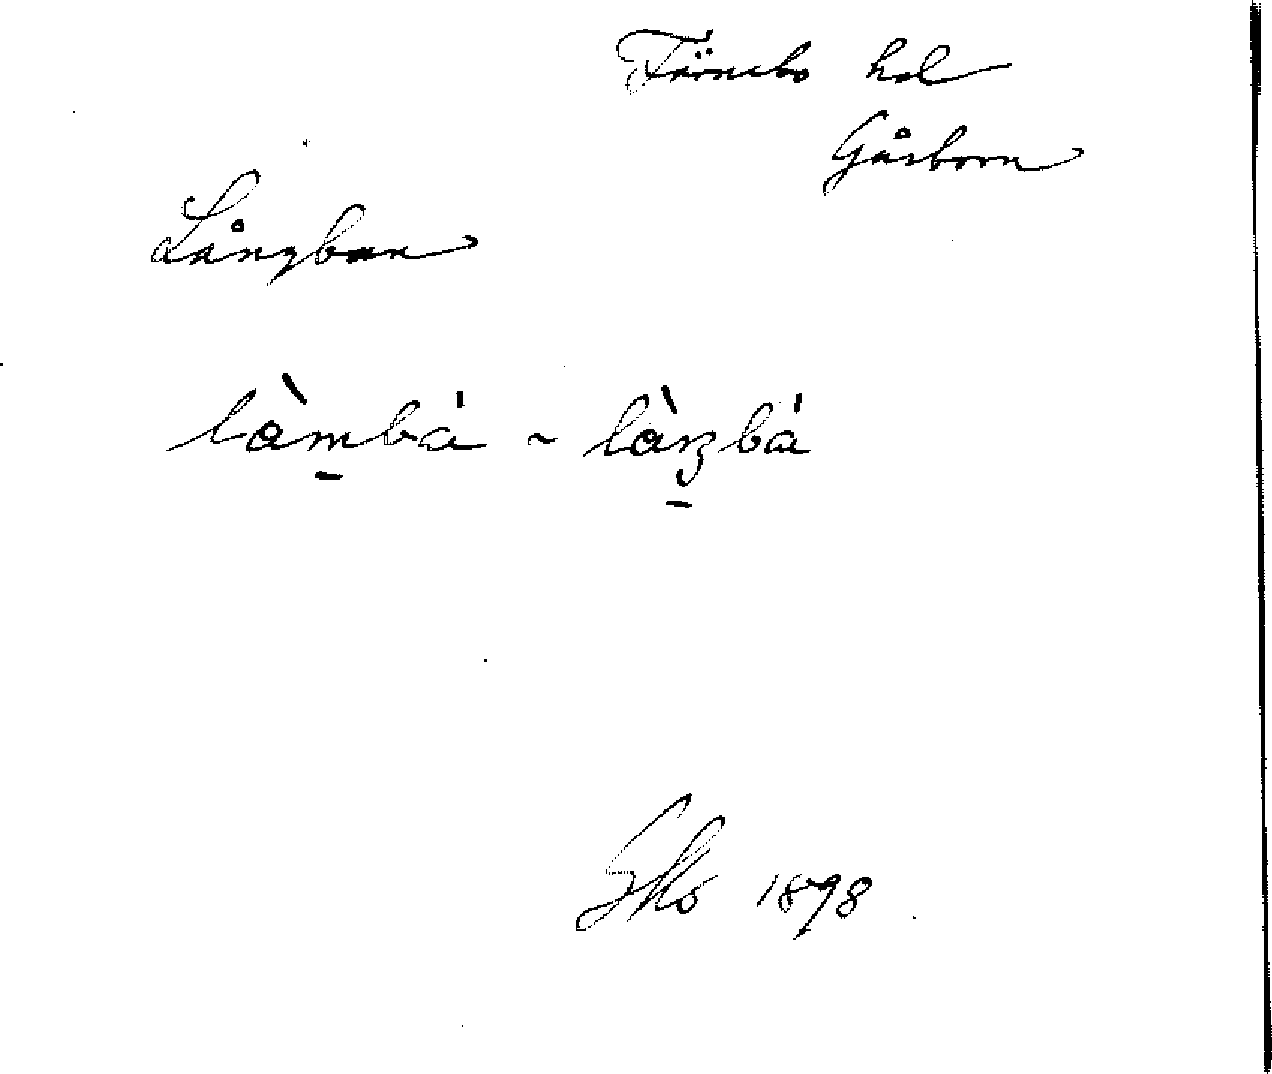 Färnebo hd
Gåsborn
Långban
làmbá ~ làŋbá
1898